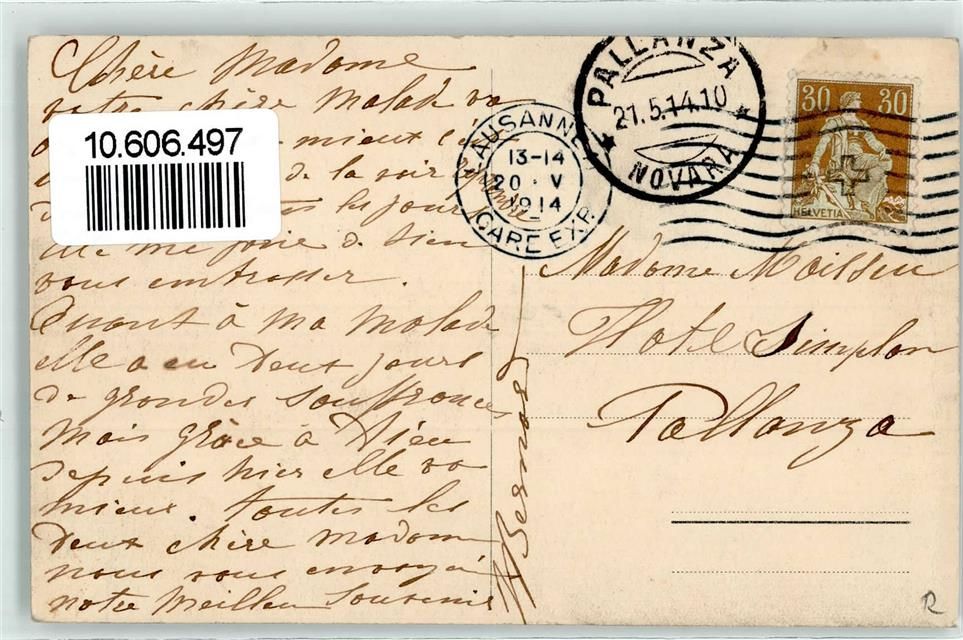 Chère Madame
votre chère malade va
mieux
de la voir
les jours
de bien
vous embrasser.
Quant à ma malade
elle a eu deux jours
de grandes souffrances
mais grâce à Dieu
depuis hier elle va
mieux. toutes les
deux chère madame
nous vous envoyé
notre meilleu souvenir
10.606.497
LAUSANNE
13-14
20 · V
1914
GARE EXP.
PALLANZA
21.5.14.10
NOVARA
30 30
HELVETIA
Madame
Hotel Simplon
Pallanza
R